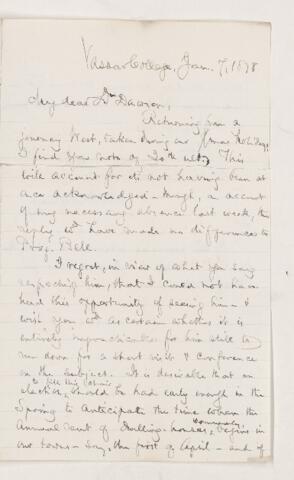 Vassar College, Jan. 7, 1878
My dear Dr Dawson,
Returning from a
journey West, taken during our Xmas Holidays,
I find your note of 20th ult. This
will account for its not having been at
once acknowledged - though, on account
of my necessary absence last week, the
reply wd have made no difference to
Prof. Bell.
I regret, in view of what you say
respecting him, that I could not have
had this opportunity of seeing him - &
wish you wd ascertain whether it is
entirely impracticable for him still to
run down for a short visit & conference
on the subject. It is desirable that an
election, to fill this should be had early enough in the
Spring to anticipate the time when the
annual rent of dwelling-houses, commonly, begins in
our town - say, the first of April - and if